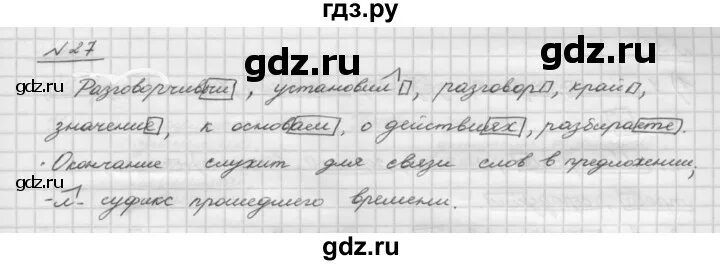 гдз.ру
№27
gdz.ru gdz.ru
Разговорчивый, установил, разговор, край,
значение, к основам, о действиях, разбираете.
· Окончание служит для связи слов в предложении;
gdz.ru gdz.ru
-л- суфикс прошедшего времени.
gdz.ru gdz.ru
gdz.ru